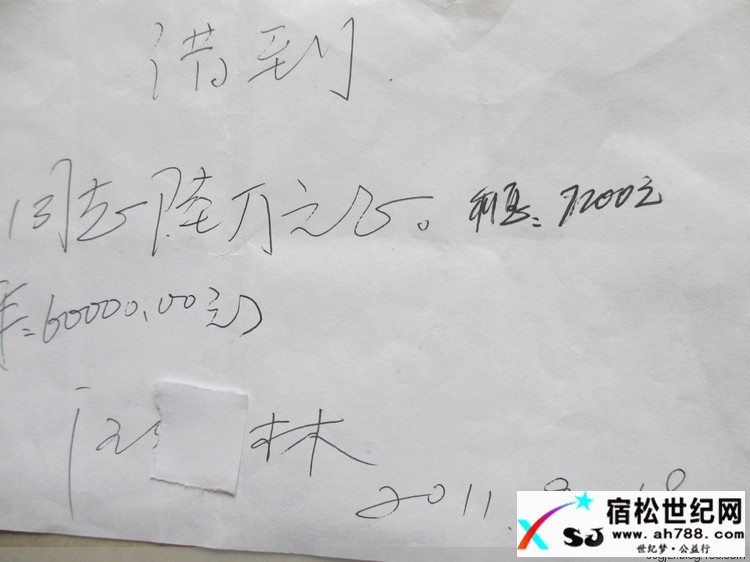 借到
同志陆万元正。 利息:7200元
:60000.00元)
林
2011.
宿松世纪网
www.ah788.com
世纪梦·公益行
SJ